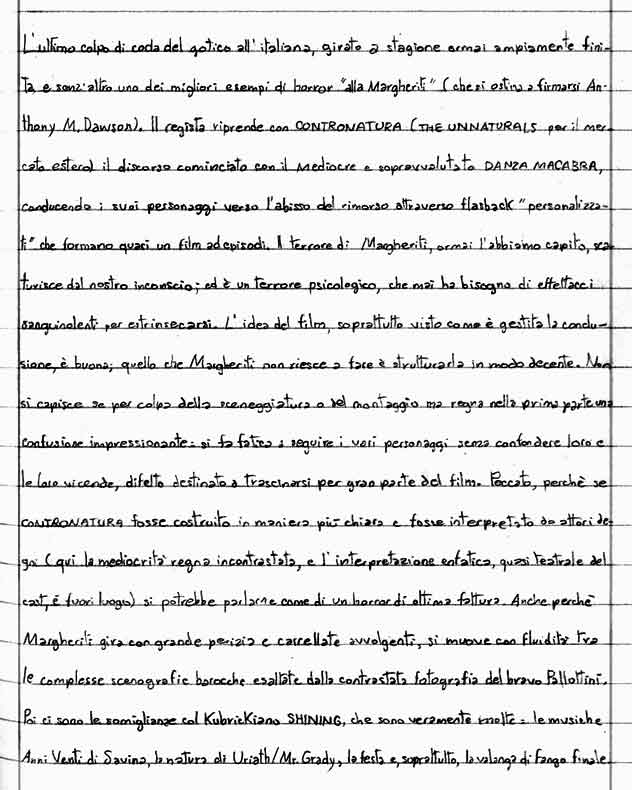 L'ultimo colpo di coda del gotico all'italiana, girato a stagione ormai ampiamente fini-
ta e senz'altro uno dei migliori esempi di horror "alla Margheriti" (che si ostina a firmarsi An-
thony M. Dawson). Il regista riprende con CONTRONATURA (THE UNNATURALS per il mer-
cato estero) il discorso cominciato con il mediocre e sopravvalutato DANZA MACABRA,
conducendo i suoi personaggi verso l'abisso del rimorso attraverso flasback "personalizza-
ti" che formano quasi un film ad episodi. Il terrore di Margheriti, ormai l'abbiamo capito, sca-
turisce dal nostro inconscio; ed è un terrore psicologico, che mai ha bisogno di effettacci
sanguinolenti per estrinsecarsi. L'idea del film, soprattutto visto come è gestita la conclu-
sione, è buona; quello che Margheriti non riesce a fare è strutturarla in modo decente. Non
si capisce se per colpa della sceneggiatura o del montaggio ma regna nella prima parte una
confusione impressionante: si fa fatica a seguire i vari personaggi senza confondere loro e
le loro vicende, difetto destinato a trascinarsi per gran parte del film. Peccato, perchè se
CONTRONATURA fosse costruito in maniera più chiara e fosse interpretato da attori de-
gni (qui la mediocrità regna incontrastata, e l'interpretazione enfatica, quasi teatrale del
cast, è fuori luogo) si potrebbe parlarne come di un horror di ottima fattura. Anche perchè
Margheriti gira con grande perizia e carrellate avvolgenti, si muove con fluidità tra
le complesse scenografie barocche esaltate dalla contrastata fotografia del bravo Pallottini.
Poi ci sono le somiglianze col Kubrickiano SHINING, che sono veramente molte: le musiche
Anni Venti di Savina, la natura di Uriath/Mr. Grady, la festa e, soprattutto, la valanga di fango finale